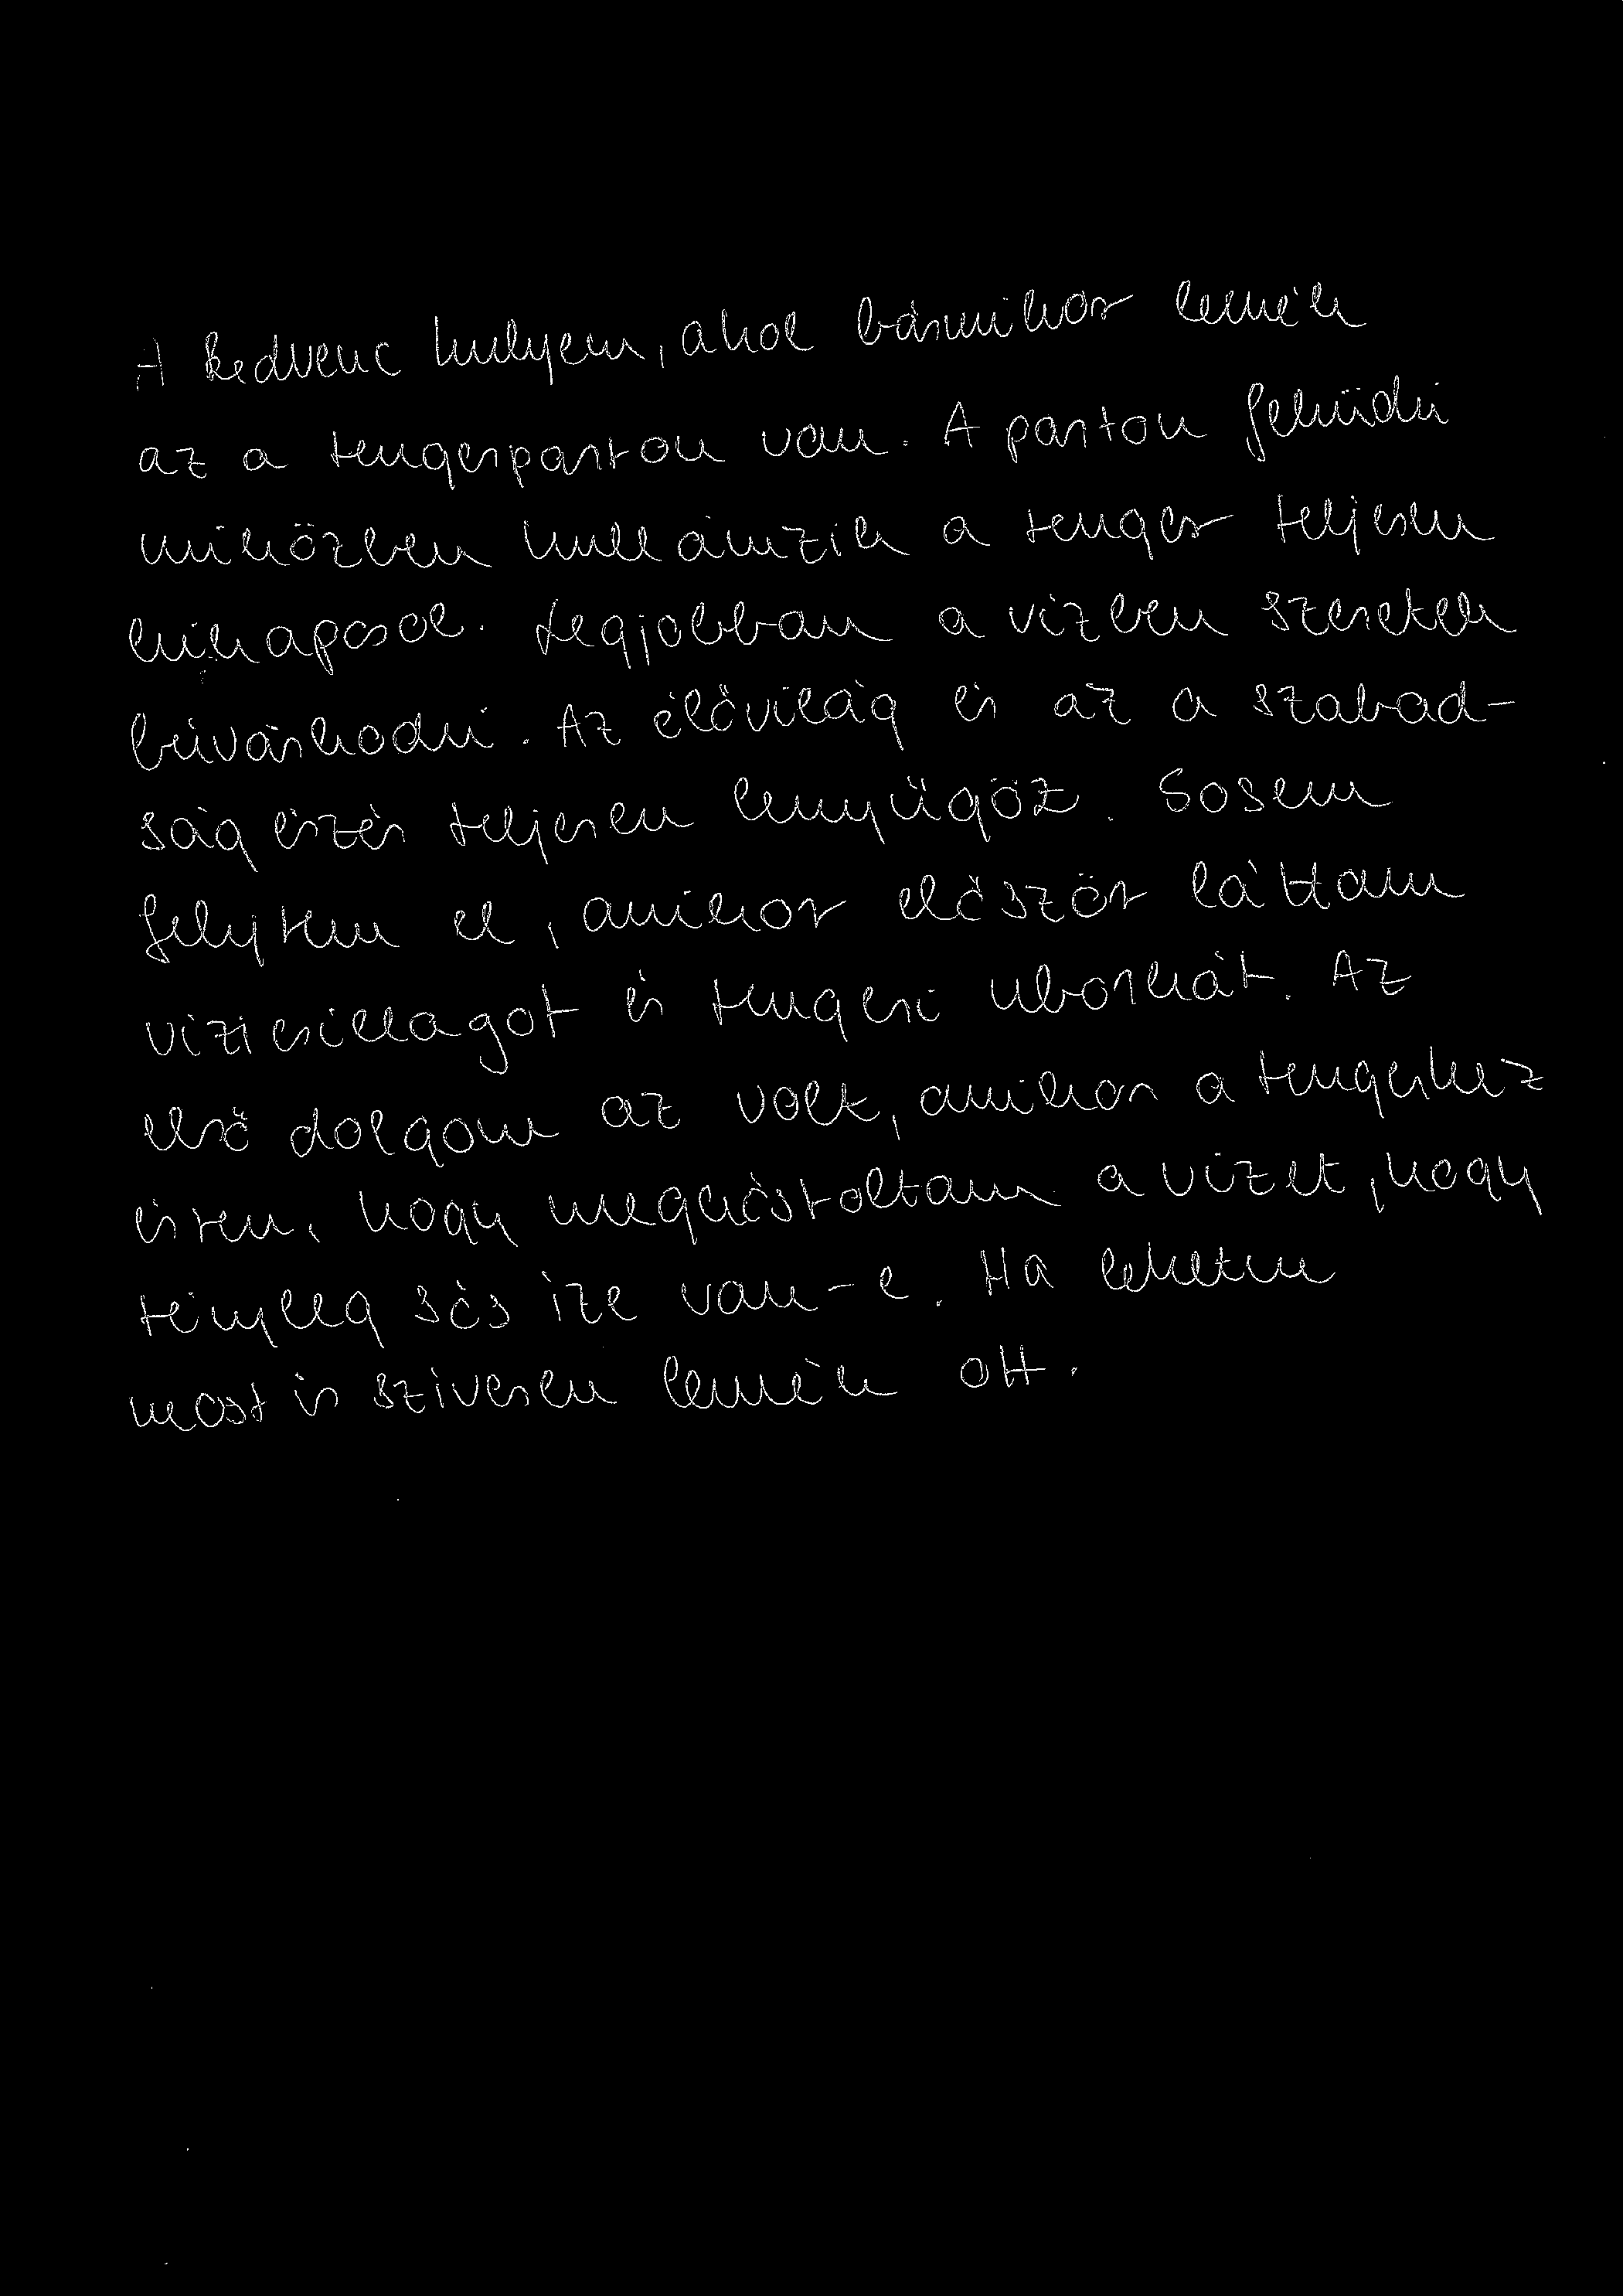 A kedvenc helyem, ahol bármikor lennék
az a tengerparton van. A parton feküdni
miközben hullámzik a tenger teljesen
kikapcsol. Legjobban a vizben szeretek
búvárkodni. Az élővilág és az a szabad-
ság érzés teljesen lenyügöz. Sosem
felejtem el, amikor először láttam
vizicsillagot és tengeri uborkát. Az
első dolgom az volt, amikor a tengerhez
értem, hogy megkóstoltam a vizet, hogy
tényleg sós íze van-e. Ha lehetne
most is szivesen lennék ott.